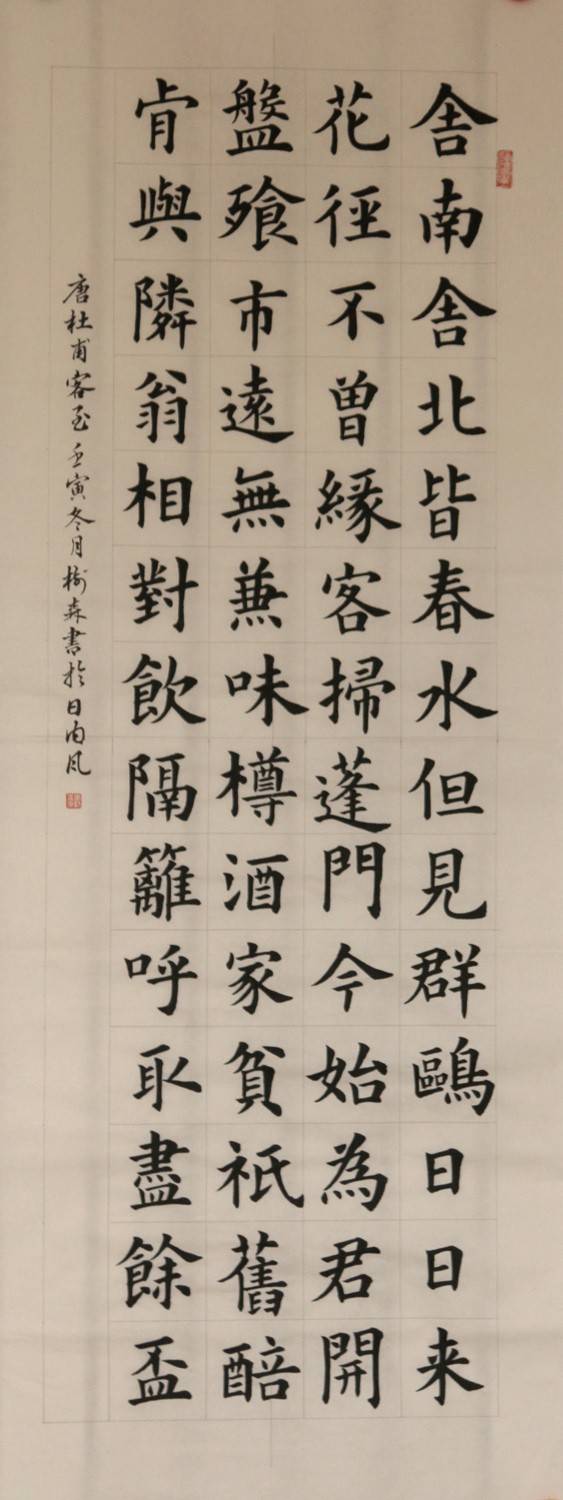 舎南舎北皆春水但見群鷗日日来
花徑不曽緣客掃蓬門今始為君開
盤飱市遠無兼味樽酒家貧衹舊醅
肯與隣翁相對飲隔籬呼取盡餘盃
唐杜甫客至壬寅冬月樹森書於日內風